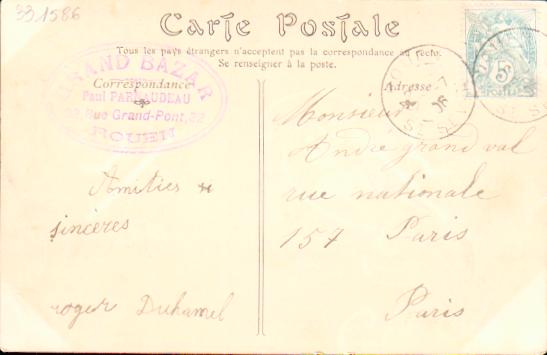 331586
Carte Postale
Tous les pays étrangers n'acceptent pas la correspondance au recto.
Se renseigner à la poste.
GRAND BAZAR
Paul PARNAUDEAU
22, Rue Grand-Pont, 22
ROUEN
Correspondance
Adresse
5c
Monsieur
Andre grandval
rue nationale
157 Paris
Paris
Amities
sincères
roger Duhamel